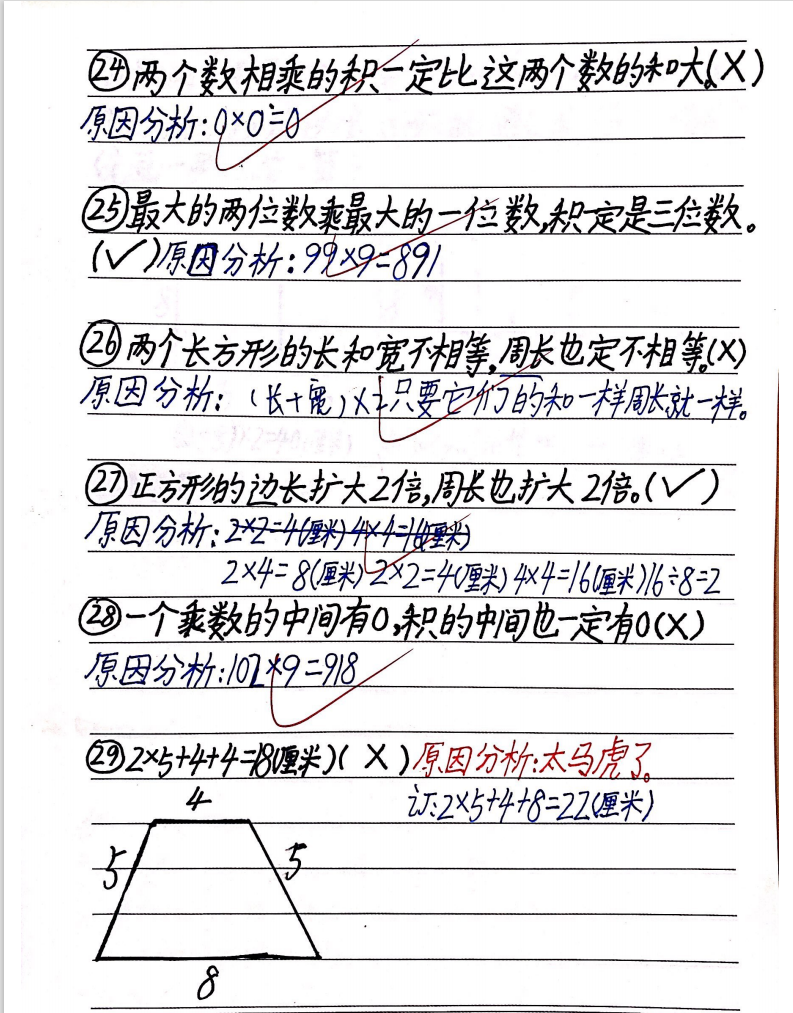 ㉔两个数相乘的积一定比这两个数的和大。(X)
原因分析:0×0=0
㉕最大的两位数乘最大的一位数,积一定是三位数。
(✓)原因分析:99×9=891
㉖两个长方形的长和宽不相等,周长也定不相等。(X)
原因分析:(长+宽)×2只要它们的和一样周长就一样。
㉗正方形的边长扩大2倍,周长也扩大2倍。(✓)
原因分析:2×2=4(厘米)4×4=16(厘米)
2×4=8(厘米)2×2=4(厘米)4×4=16(厘米)16÷8=2
㉘一个乘数的中间有0,积的中间也一定有0(X)
原因分析:102×9=918
㉙2×5+4+4=18(厘米)(X)原因分析:太马虎了。
订:2×5+4+8=22(厘米)
4
5 5
8